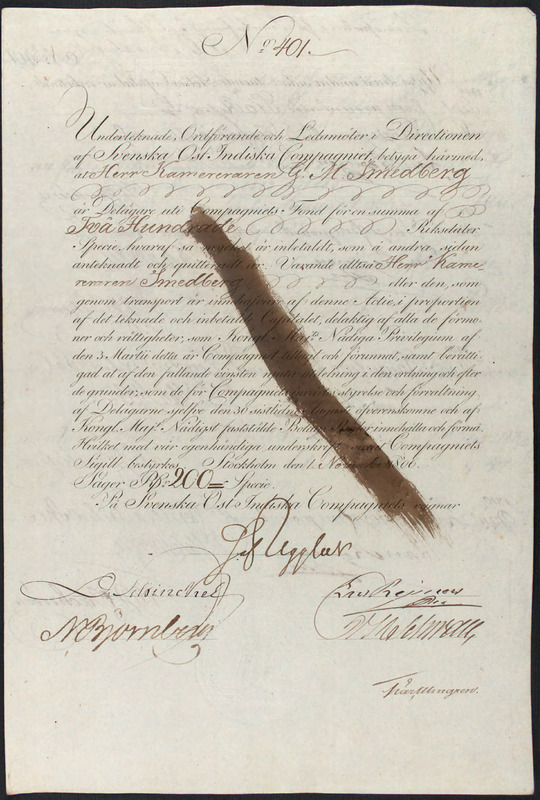 No 401.
Underteknade, Ordförande och Ledamöter i Directionen
af Svenska Ost Indiska Compagniet, betyga härmed,
at Herr Kamereraren G. M. Smedberg
är Delägare uti Compagniets Fond för en summa af
Två Hundrade Riksdaler
Specie, hvaraf så mycket är inbetaldt, som å andra sidan
antecknadt och quitteradt är. Varande alltså Herr Kame-
reraren Smedberg eller den, som
genom transport är innehafvare af denne Actie, i proportion
af det teknade och inbetalde Capitalet, delaktig af alla de förmo-
ner och rättigheter, som Kongl. Maj:ts Nådiga Privilegium af
den 3 Martii detta år Compagniet och förunnat, samt berätti-
gad at af den fallande vinsten njuta utdelning i den ordning och efter
de grunder, som de för Compagniets styrelse och förvaltning
af Delägarne sjelfve den 30 sistledne öfverenskomne och af
Kongl. Maj:t Nådigst faststälde innehålla och förmå.
Hvilket med vår egenhändiga underskrift samt Compagniets
Sigill bestyrkes. Stockholm den 1. 1806.
Säger Rdr 200 Specie.
På Svenska Ost Indiska Compagniets vägnar
af Ugglas
Schinckel
N Björnberg